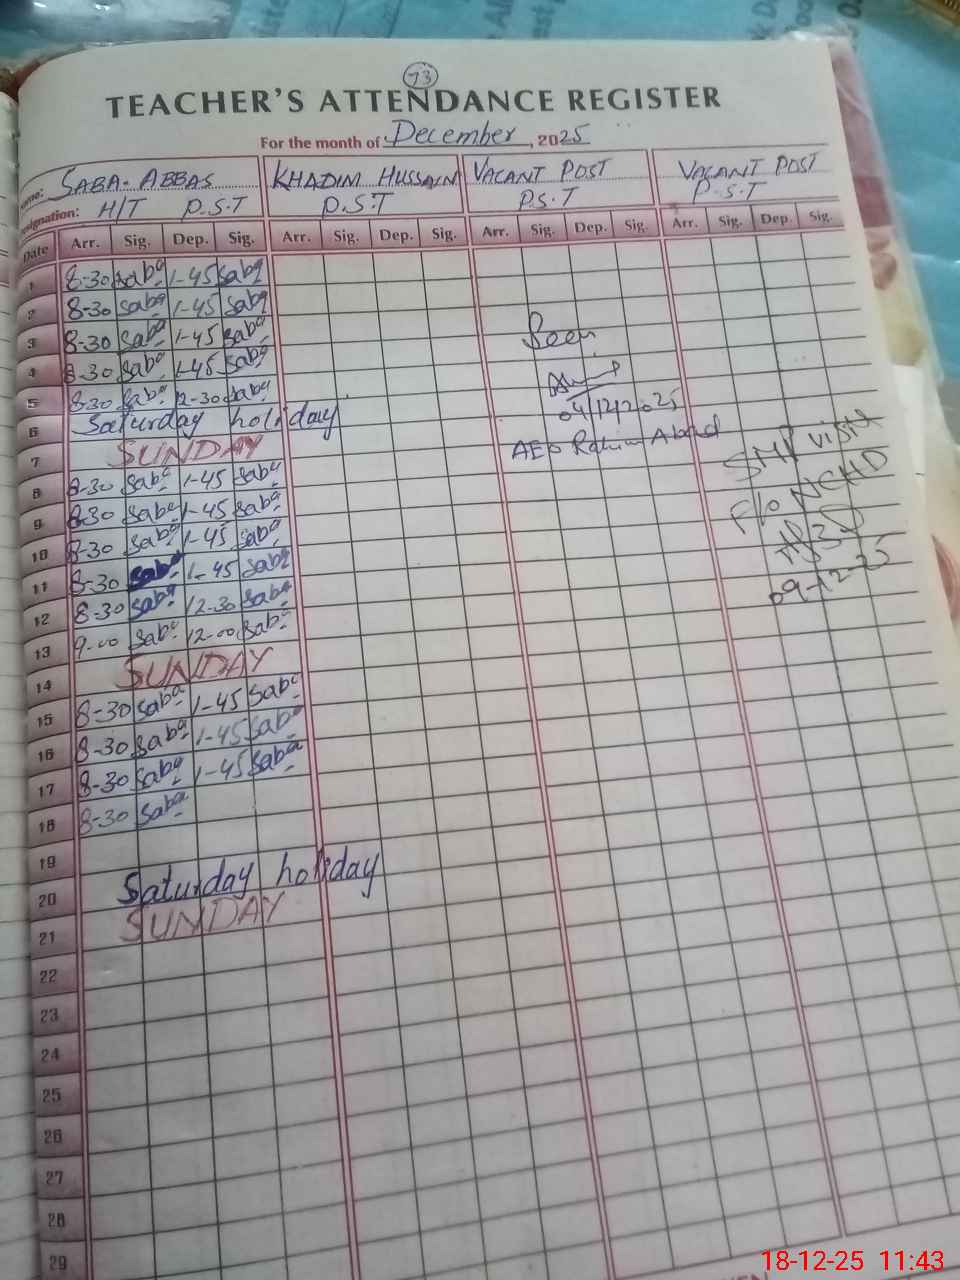 73
TEACHER'S ATTENDANCE REGISTER
For the month of December, 2025
Name: SABA ABBAS KHADIM HUSSAIN VACANT POST VACANT POST
Designation: H/T P.S.T P.S.T P.S.T P.S.T
Date Arr. Sig. Dep. Sig. Arr. Sig. Dep. Sig. Arr. Sig. Dep. Sig. Arr. Sig. Dep. Sig.
1 8-30 Saba 1-45 Saba
2 8-30 Saba 1-45 Saba
3 8-30 Saba 1-45 Saba Seen
4 8-30 Saba 1-45 Saba
5 8-30 Saba 12-30 Saba 04/12/2025
6 Saturday holiday
7 SUNDAY AEO Rahim Abad
8 8-30 Saba 1-45 Saba SMR visit
9 8-30 Saba 1-45 Saba F/o NCHD
10 8-30 Saba 1-45 Saba
11 8-30 Saba 1-45 Saba 09-12-25
12 8-30 Saba 12-30 Saba
13 9-00 Saba 12-00 Saba
14 SUNDAY
15 8-30 Saba 1-45 Saba
16 8-30 Saba 1-45 Saba
17 8-30 Saba 1-45 Saba
18 8-30 Saba
19
20 Saturday holiday
21 SUNDAY
22
23
24
25
26
27
28
29
18-12-25 11:43